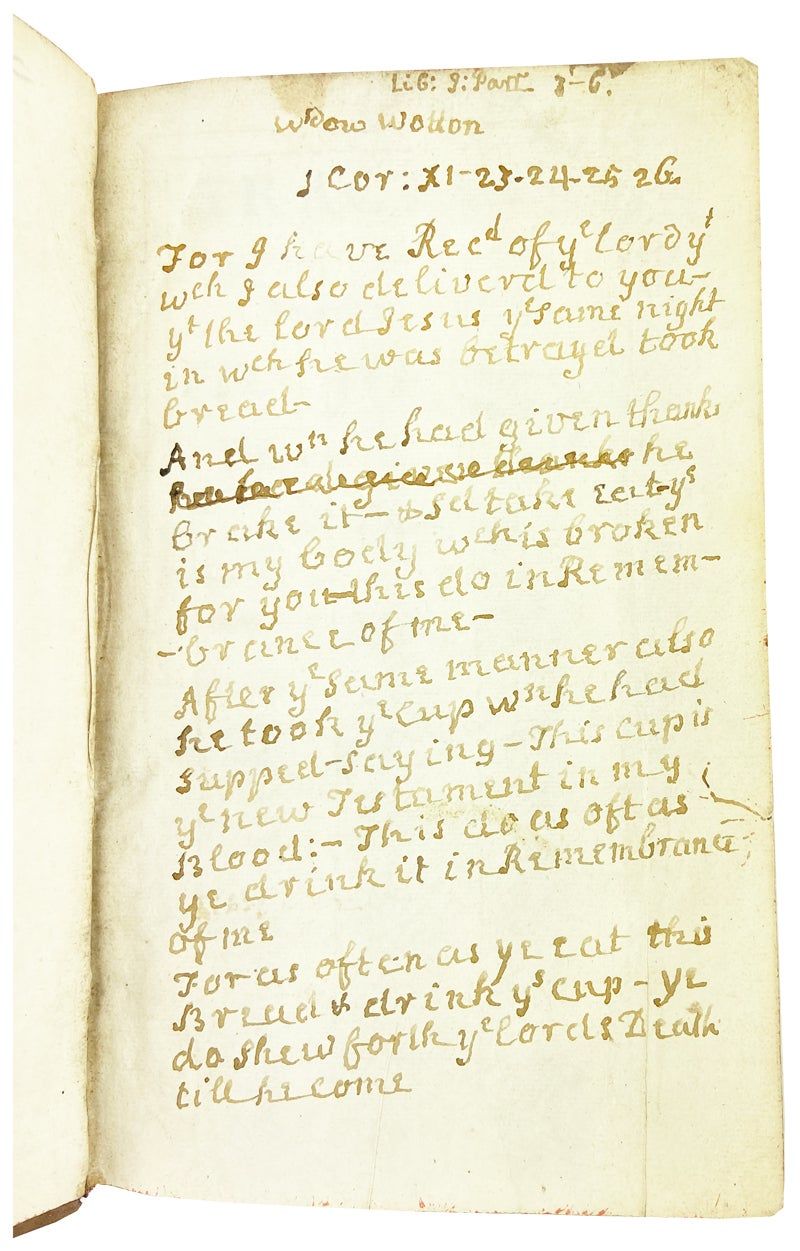 Lib: J: Part 3-6.
Wdow Wotton
1 Cor: XI-23.24-25 26.
For I have Recd of ye lord yt
wch I also deliverd to you-
yt the lord Jesus ye same night
in wch he was betrayed took
bread-
And wn he had given thanks
he had given thanks he
brake it - & sd take Eat-ys
is my body wch is broken
for you-this do in Remem-
-brance of me-
After ye same manner also
he took ye cup wn he had
supped-saying-This cup is
ye new Testament in my
Blood:-This do as oft as
ye drink it in Remembrance
of me
For as often as ye eat this
Bread & drink ys cup-ye
do shew forth ye lords Death
till he come